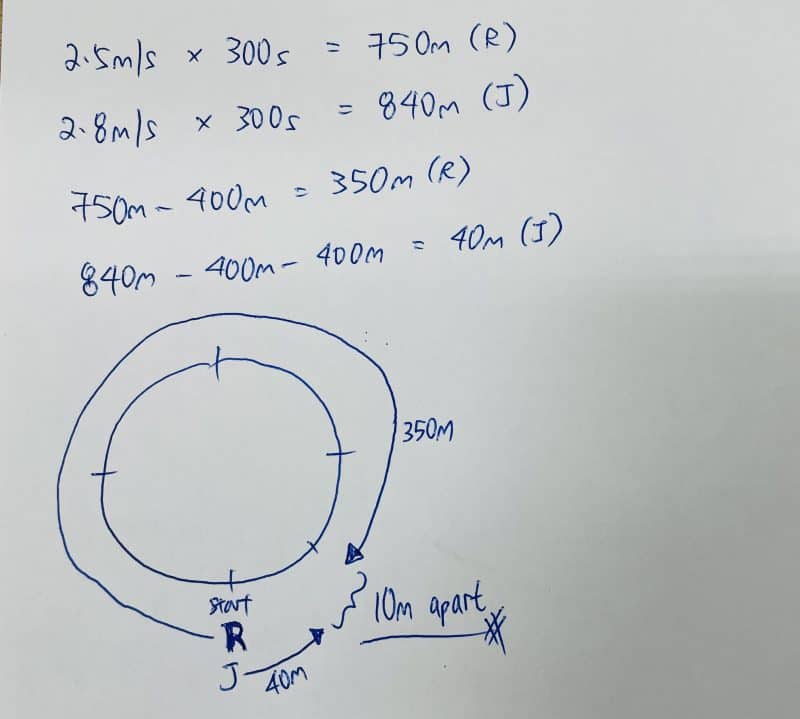 2.5m/s × 300s = 750m (R)
2.8m/s × 300s = 840m (J)
750m - 400m = 350m (R)
840m - 400m - 400m = 40m (J)
350M
start
10m apart
R
J
40m